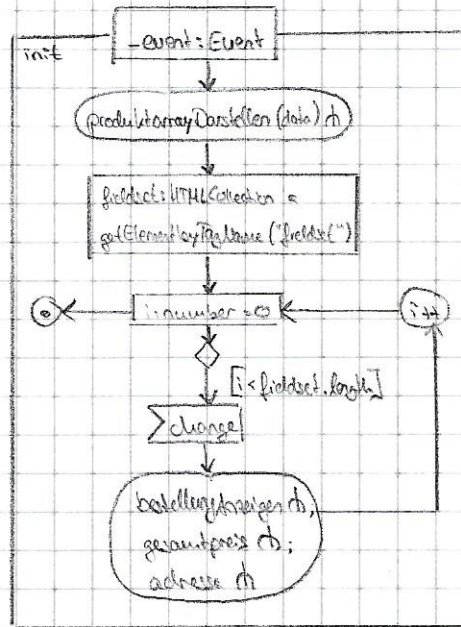 init
_event: Event
produktarrayDarstellen (data)
fieldset: HTMLCollection =
getElementbyTagName ("fieldset")
i: number = 0
i++
[i < fieldset.length]
change
bestellungAnzeigen ,
gesamtpreis ;
adresse